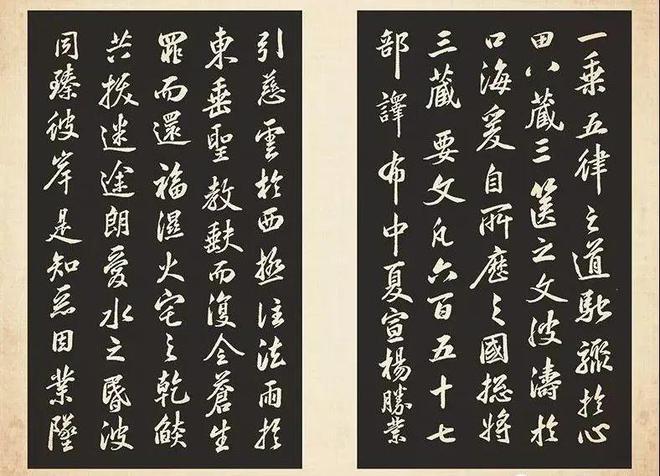 一乘五律之道馳驟於心
田八藏三篋之文波濤於
口海爰自所歷之國總將
三藏要文凡六百五十七
部譯布中夏宣楊勝業
引慈雲於西極注法雨於
東垂聖教缺而復全蒼生
罪而還福濕火宅之乾燄
共拔迷途朗愛水之昏波
同臻彼岸是知惡因業墜